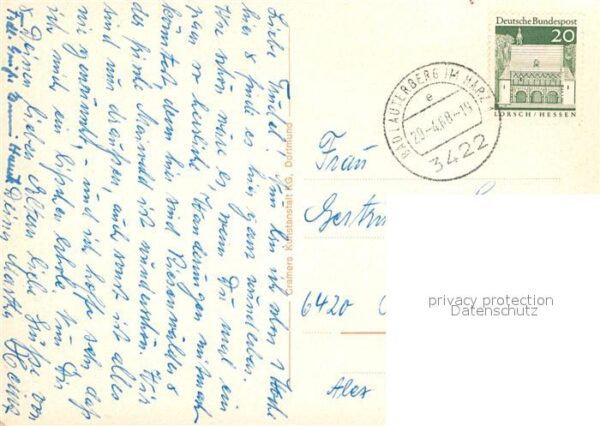 Liebe Trudel! Nun bin ich schon 1 Woche
hier & finde es hier ganz wunderbar.
Wie schön wäre es, wenn Du mal ein
paar so herrliche Wanderungen mitmachen
könntest, denn hier sind Riesenwälder &
der frische Maiwald ist wunderschön. Wir
sind nur draußen, auch sonst ist alles
wie gewünscht, und ich hoffe sehr, daß
ich mich ein bißchen erhole. Nun Dir
& Deinen lieben Eltern liebe Grüße von
Deine Martha
Viele Grüße
Cramers Kunstanstalt KG, Dortmund
Deutsche Bundespost
20
LORSCH/HESSEN
BAD LAUTERBERG IM HARZ
e
20.-4.68-19
3422
Frau
Gertr
6420
Alex
privacy protection
Datenschutz